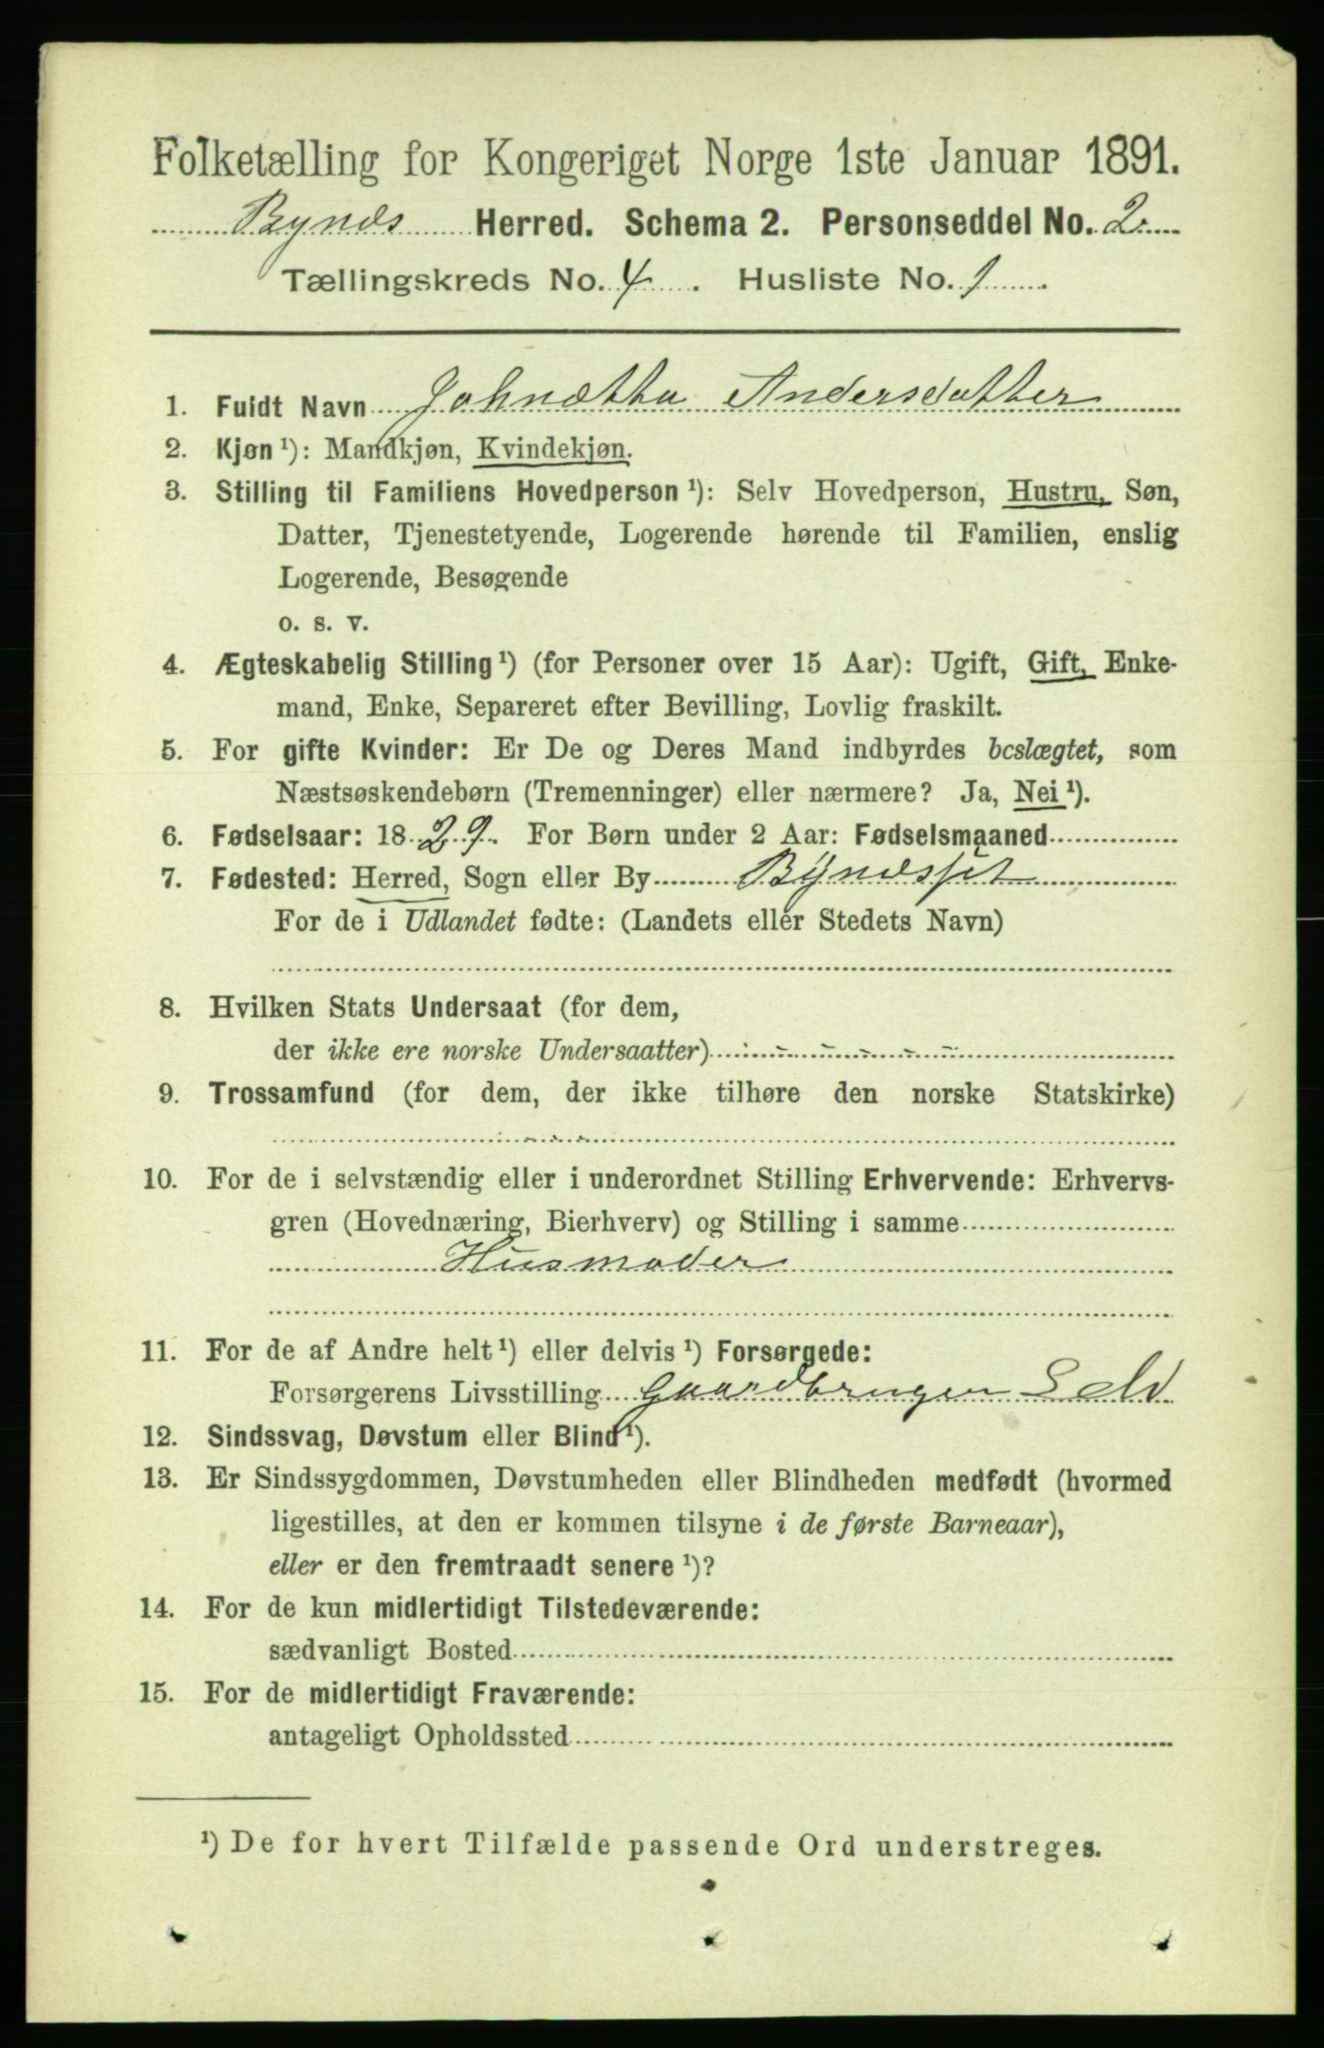 Folketælling for Kongeriget Norge 1ste Januar 1891.
Bynes Herred. Schema 2. Personseddel No. 2.
Tællingskreds No. 4. Husliste No. 1.
1. Fuldt Navn Johnetta Andersdatter
2. Kjøn ¹): Mandkjøn, Kvindekjøn.
3. Stilling til Familiens Hovedperson ¹): Selv Hovedperson, Hustru, Søn,
Datter, Tjenestetyende, Logerende hørende til Familien, enslig
Logerende, Besøgende
o. s. v.
4. Ægteskabelig Stilling ¹) (for Personer over 15 Aar): Ugift, Gift, Enke-
mand, Enke, Separeret efter Bevilling, Lovlig fraskilt.
5. For gifte Kvinder: Er De og Deres Mand indbyrdes beslægtet, som
Næstsøskendebørn (Tremenninger) eller nærmere? Ja, Nei ¹).
6. Fødselsaar: 1829. For Børn under 2 Aar: Fødselsmaaned
7. Fødested: Herred, Sogn eller By Bynesset
For de i Udlandet fødte: (Landets eller Stedets Navn)
8. Hvilken Stats Undersaat (for dem,
der ikke ere norske Undersaatter)
9. Trossamfund (for dem, der ikke tilhøre den norske Statskirke)
10. For de i selvstændig eller i underordnet Stilling Erhvervende: Erhvervs-
gren (Hovednæring, Bierhverv) og Stilling i samme
Husmoder
11. For de af Andre helt ¹) eller delvis ¹) Forsørgede:
Forsørgerens Livsstilling Gaardbruger Selv
12. Sindssvag, Døvstum eller Blind ¹).
13. Er Sindssygdommen, Døvstumheden eller Blindheden medfødt (hvormed
ligestilles, at den er kommen tilsyne i de første Barneaar),
eller er den fremtraadt senere ¹)?
14. For de kun midlertidigt Tilstedeværende:
sædvanligt Bosted
15. For de midlertidigt Fraværende:
antageligt Opholdssted
¹) De for hvert Tilfælde passende Ord understreges.